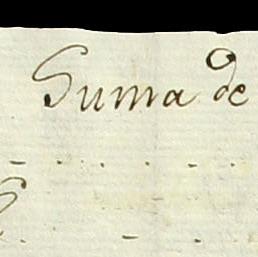 Suma de